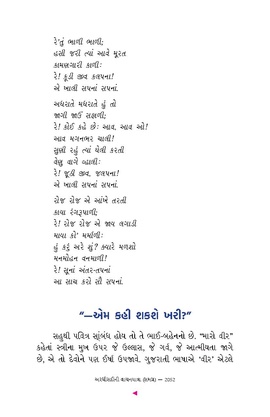 રે'તું ભાળી ભાળી;
હસી જરી ત્યાં આવે મૂરત
કામણગારી કાળીઃ
રે! કૂડી જીવ કલપના!
એ ખાલી સપનાં સપનાં.
અધરાતે મધરાતે હું તો
જાગી જાઉં સફાળી;
રે! કોઈ કહે છેઃ આવ, આવ, ઓ!
આવ મગનભર ચાલી!
સુણી રહું ત્યાં ઘેલી કરતી
વેણુ વાગે વ્હાલીઃ
રે! જૂઠી જીવ, જલપના!
એ ખાલી સપનાં સપનાં.
રોજ રોજ એ આંખે તરતી
કાયા રંગરૂપાળી;
રે! રોજ રોજ એ જાવ લગાડી
માયા કો' મર્માળીઃ
હું કહું અરે શું? ક્યારે મળશો
મનમોહન વનમાળી!
રે! સૂનાં અંતર-તપનાં
આ સાચ કરો સૌ સપનાં.
“—એમ કહી શકશે ખરી?”
સહુથી પવિત્ર સંબંધ હોય તો તે ભાઈ-બહેનનો છે. “મારો વીર”
કહેતાં સ્ત્રીના મુખ ઉપર જે ઉલ્લાસ, જે ગર્વ, જે આત્મીયતા જાગે
છે, એ તો દેવોને પણ ઈર્ષા ઉપજાવે. ગુજરાતી ભાષાએ ‘વીર’ એટલે
અરધી સદીની વાચનયાત્રા – 2052